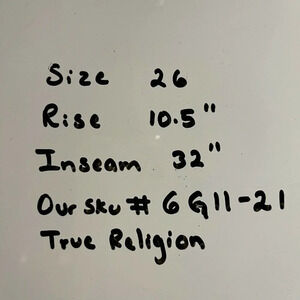 Size 26
Rise 10.5"
Inseam 32"
Our sku # 6G11-21
True Religion